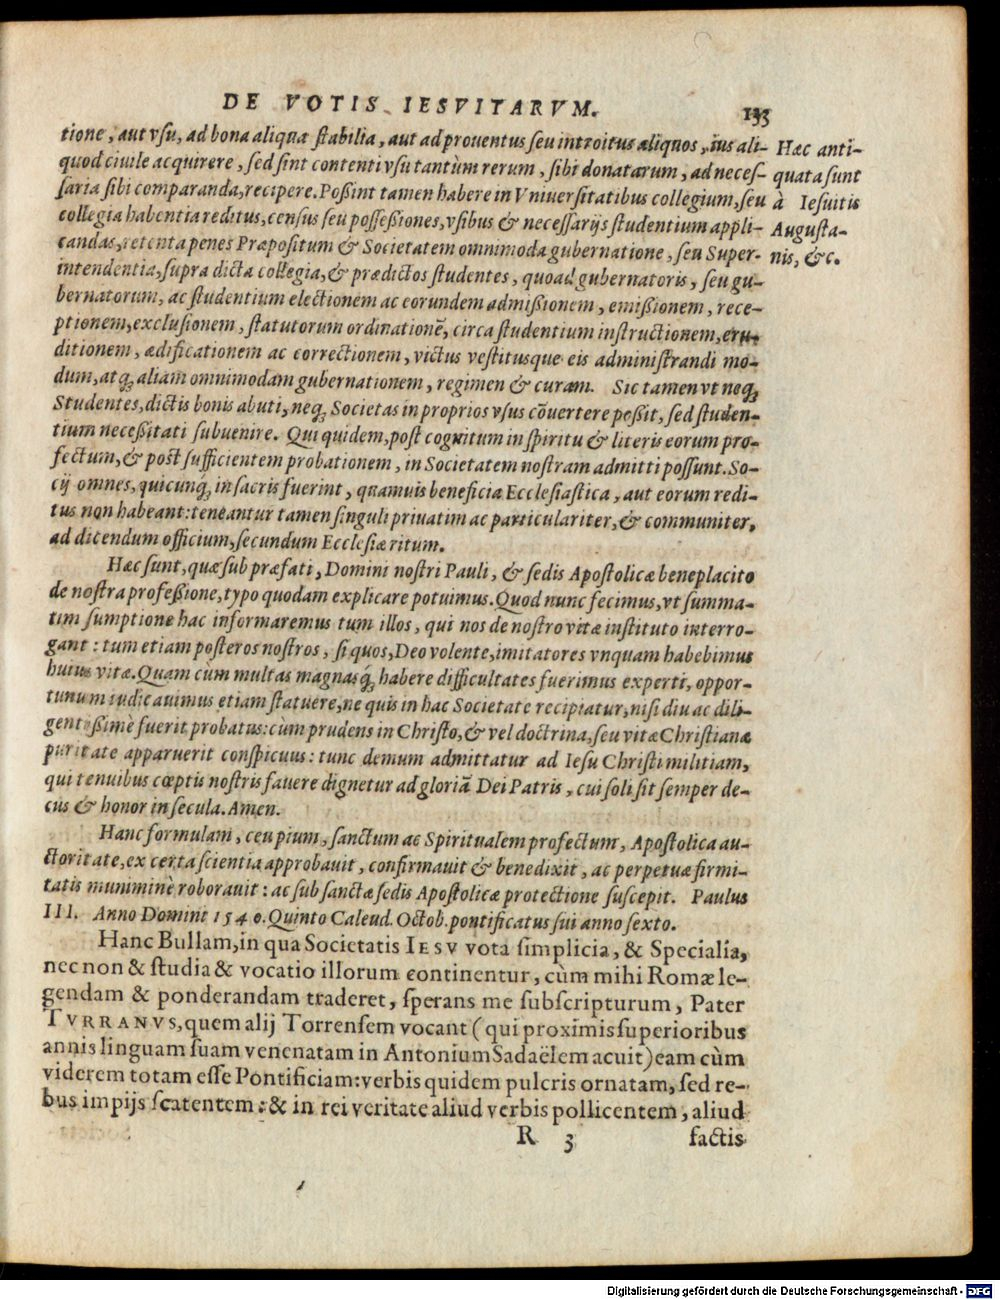 DE VOTIS IESVITARVM. 133
tione, aut vsu, ad bona aliqua stabilia, aut ad prouentus seu introitus aliquos, ius ali-
quod ciuile acquirere, sed sint contenti vsu tantùm rerum, sibi donatarum, ad neces-
saria sibi comparanda, recipere. Poßint tamen habere in Vniuersitatibus collegium, seu
collegia habentia reditus, census seu posseßiones, vsibus & necessarijs studentium appli-
candas, retenta penes Præpositum & Societatem omnimoda gubernatione, seu Super-
intendentia, supra dicta collegia, & prædictos studentes, quoad gubernatoris, seu gu-
bernatorum, ac studentium electionem ac eorundem admißionem, emißionem, rece-
ptionem, exclusionem, statutorum ordinationē, circa studentium instructionem, eru-
ditionem, ædificationem ac correctionem, victus vestitusque eis administrandi mo-
dum, atq; aliam omnimodam gubernationem, regimen & curam. Sic tamen vt neq;
Studentes, dictis bonis abuti, neq; Societas in proprios vsus cōuertere poßit, sed studen-
tium neceßitati subuenire. Qui quidem, post cognitum in spiritu & literis eorum pro-
fectum, & post sufficientem probationem, in Societatem nostram admitti possunt. So-
cij omnes, quicunq; in sacris fuerint, quamuis beneficia Ecclesiastica, aut eorum redi-
tus non habeant: teneantur tamen singuli priuatim ac particulariter, & communiter,
ad dicendum officium, secundum Ecclesiæ ritum.
Hæc sunt, quæ sub præfati, Domini nostri Pauli, & sedis Apostolicæ beneplacito
de nostra profeßione, typo quodam explicare potuimus. Quod nunc fecimus, vt summa-
tim sumptione hac informaremus tum illos, qui nos de nostro vitæ instituto interro-
gant: tum etiam posteros nostros, si quos, Deo volente, imitatores vnquam habebimus
huius vitæ. Quam cùm multas magnasq; habere difficultates fuerimus experti, oppor-
tunum iudicauimus etiam statuere, ne quis in hac Societate recipiatur, nisi diu ac dili-
gentißimè fuerit probatus: cùm prudens in Christo, & vel doctrina, seu vitæ Christianæ
puritate apparuerit conspicuus: tunc demum admittatur ad Iesu Christi militiam,
qui tenuibus cœptis nostris fauere dignetur ad gloriā Dei Patris, cui soli sit semper de-
cus & honor in secula. Amen.
Hanc formulam, ceu pium, sanctum ac Spiritualem profectum, Apostolica au-
ctoritate, ex certa scientia approbauit, confirmauit & benedixit, ac perpetuæ firmi-
tatis muniminè roborauit: ac sub sanctæ sedis Apostolicæ protectione suscepit. Paulus
III. Anno Domini 1540. Quinto Caleud. Octob. pontificatus sui anno sexto.
Hanc Bullam, in qua Societatis IESV vota simplicia, & Specialia,
nec non & studia & vocatio illorum continentur, cùm mihi Romæ le-
gendam & ponderandam traderet, sperans me subscripturum, Pater
TVRRANVS, quem alij Torrensem vocant (qui proximis superioribus
annis linguam suam venenatam in Antonium Sadaëlem acuit) eam cùm
viderem totam esse Pontificiam: verbis quidem pulcris ornatam, sed re-
bus impijs scatentem: & in rei veritate aliud verbis pollicentem, aliud
R 3 factis
Hæc anti-
quata sunt
à Iesuitis
Augusta-
nis, &c.
Digitalisierung gefördert durch die Deutsche Forschungsgemeinschaft - DFG